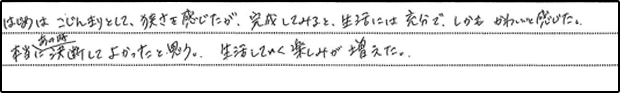 はじめは こじんまりとして、狭さを感じたが、完成してみると、生活には充分で、しかも かわいいと感じた。
あの時
本当に決断してよかったと思う。 生活していく楽しみが増えた。